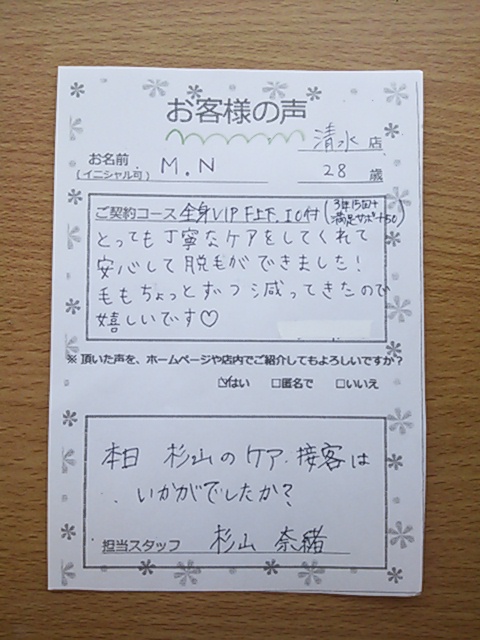 お客様の声
清水 店
お名前 M.N 28 歳
(イニシャル可)
ご契約コース 全身VIP 下上下、IO付 (3年15回+
満足サポート50)
とっても丁寧なケアをしてくれて
安心して脱毛ができました!
毛もちょっとずつ減ってきたので
嬉しいです♡
※ 頂いた声を、ホームページや店内でご紹介してもよろしいですか?
☑はい □匿名で □いいえ
本日 杉山のケア、接客は
いかがでしたか?
担当スタッフ 杉山 奈緒